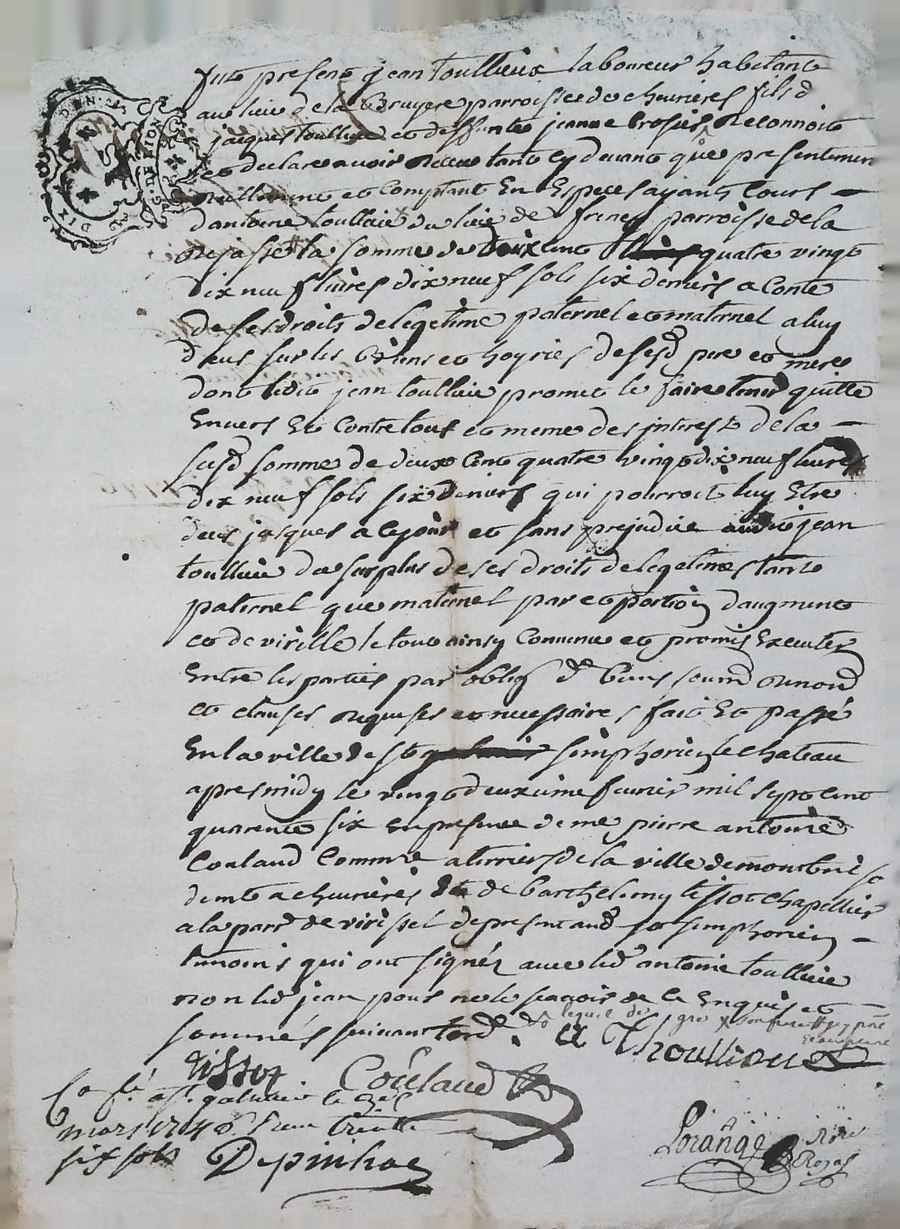 fut present jean toullieux laboureur habitant
au lieu de la bruyere parroisse de chevrieres fils d
jacques toullieu et deffunte jeanne brosses reconnoit
et declare avoir receu tant cy devant que presentemen
reellement et comptant en especes ayant cours
d antoine toullieu du lieu de parroisse de la
la somme de deux cent quatre vingt
dix neuf livres dix neuf sols six deniers a conte
de ses droits de legetime paternel et maternel a luy
deus sur les biens et hoyries de sesd pere et mere
dont ledit jean toullieu promet le faire tenir quitte
envers et contre tous et meme des jnterest de la
susd somme de deux cent quatre vingt dix neuf livres
dix neuf sols six deniers qui pourroit luy etre
deus jusques a ce jour et sans prejudice audit jean
toullieu du surplus de ses droits de legetimes tant
paternel que maternel part et portion d augment
et de virille le tout ainsy convenu et promis executer
entre les parties par oblig de biens soumd renond
et clauses requises et necessaires fait et passé
en la ville de st simphorien le chateau
apres midy le vingt deuxieme fevrier mil sept cent
quarente six en presence de me pierre antoine
Coulaud commre a terriers de la ville de montbrison
demt a chevrieres et de barthelemy tissot chapellier
a la part de virissel de present aud st simphorien
temoins qui ont signéz avec led antoine toullieu
non led jean pour ne le scavoir de ce enquis et
sommés suivant lord
A Thoullieu
tissot Coulaud
Lorange Nore Royal
st galmier le
mars 1746 trente
six sols Depinhac